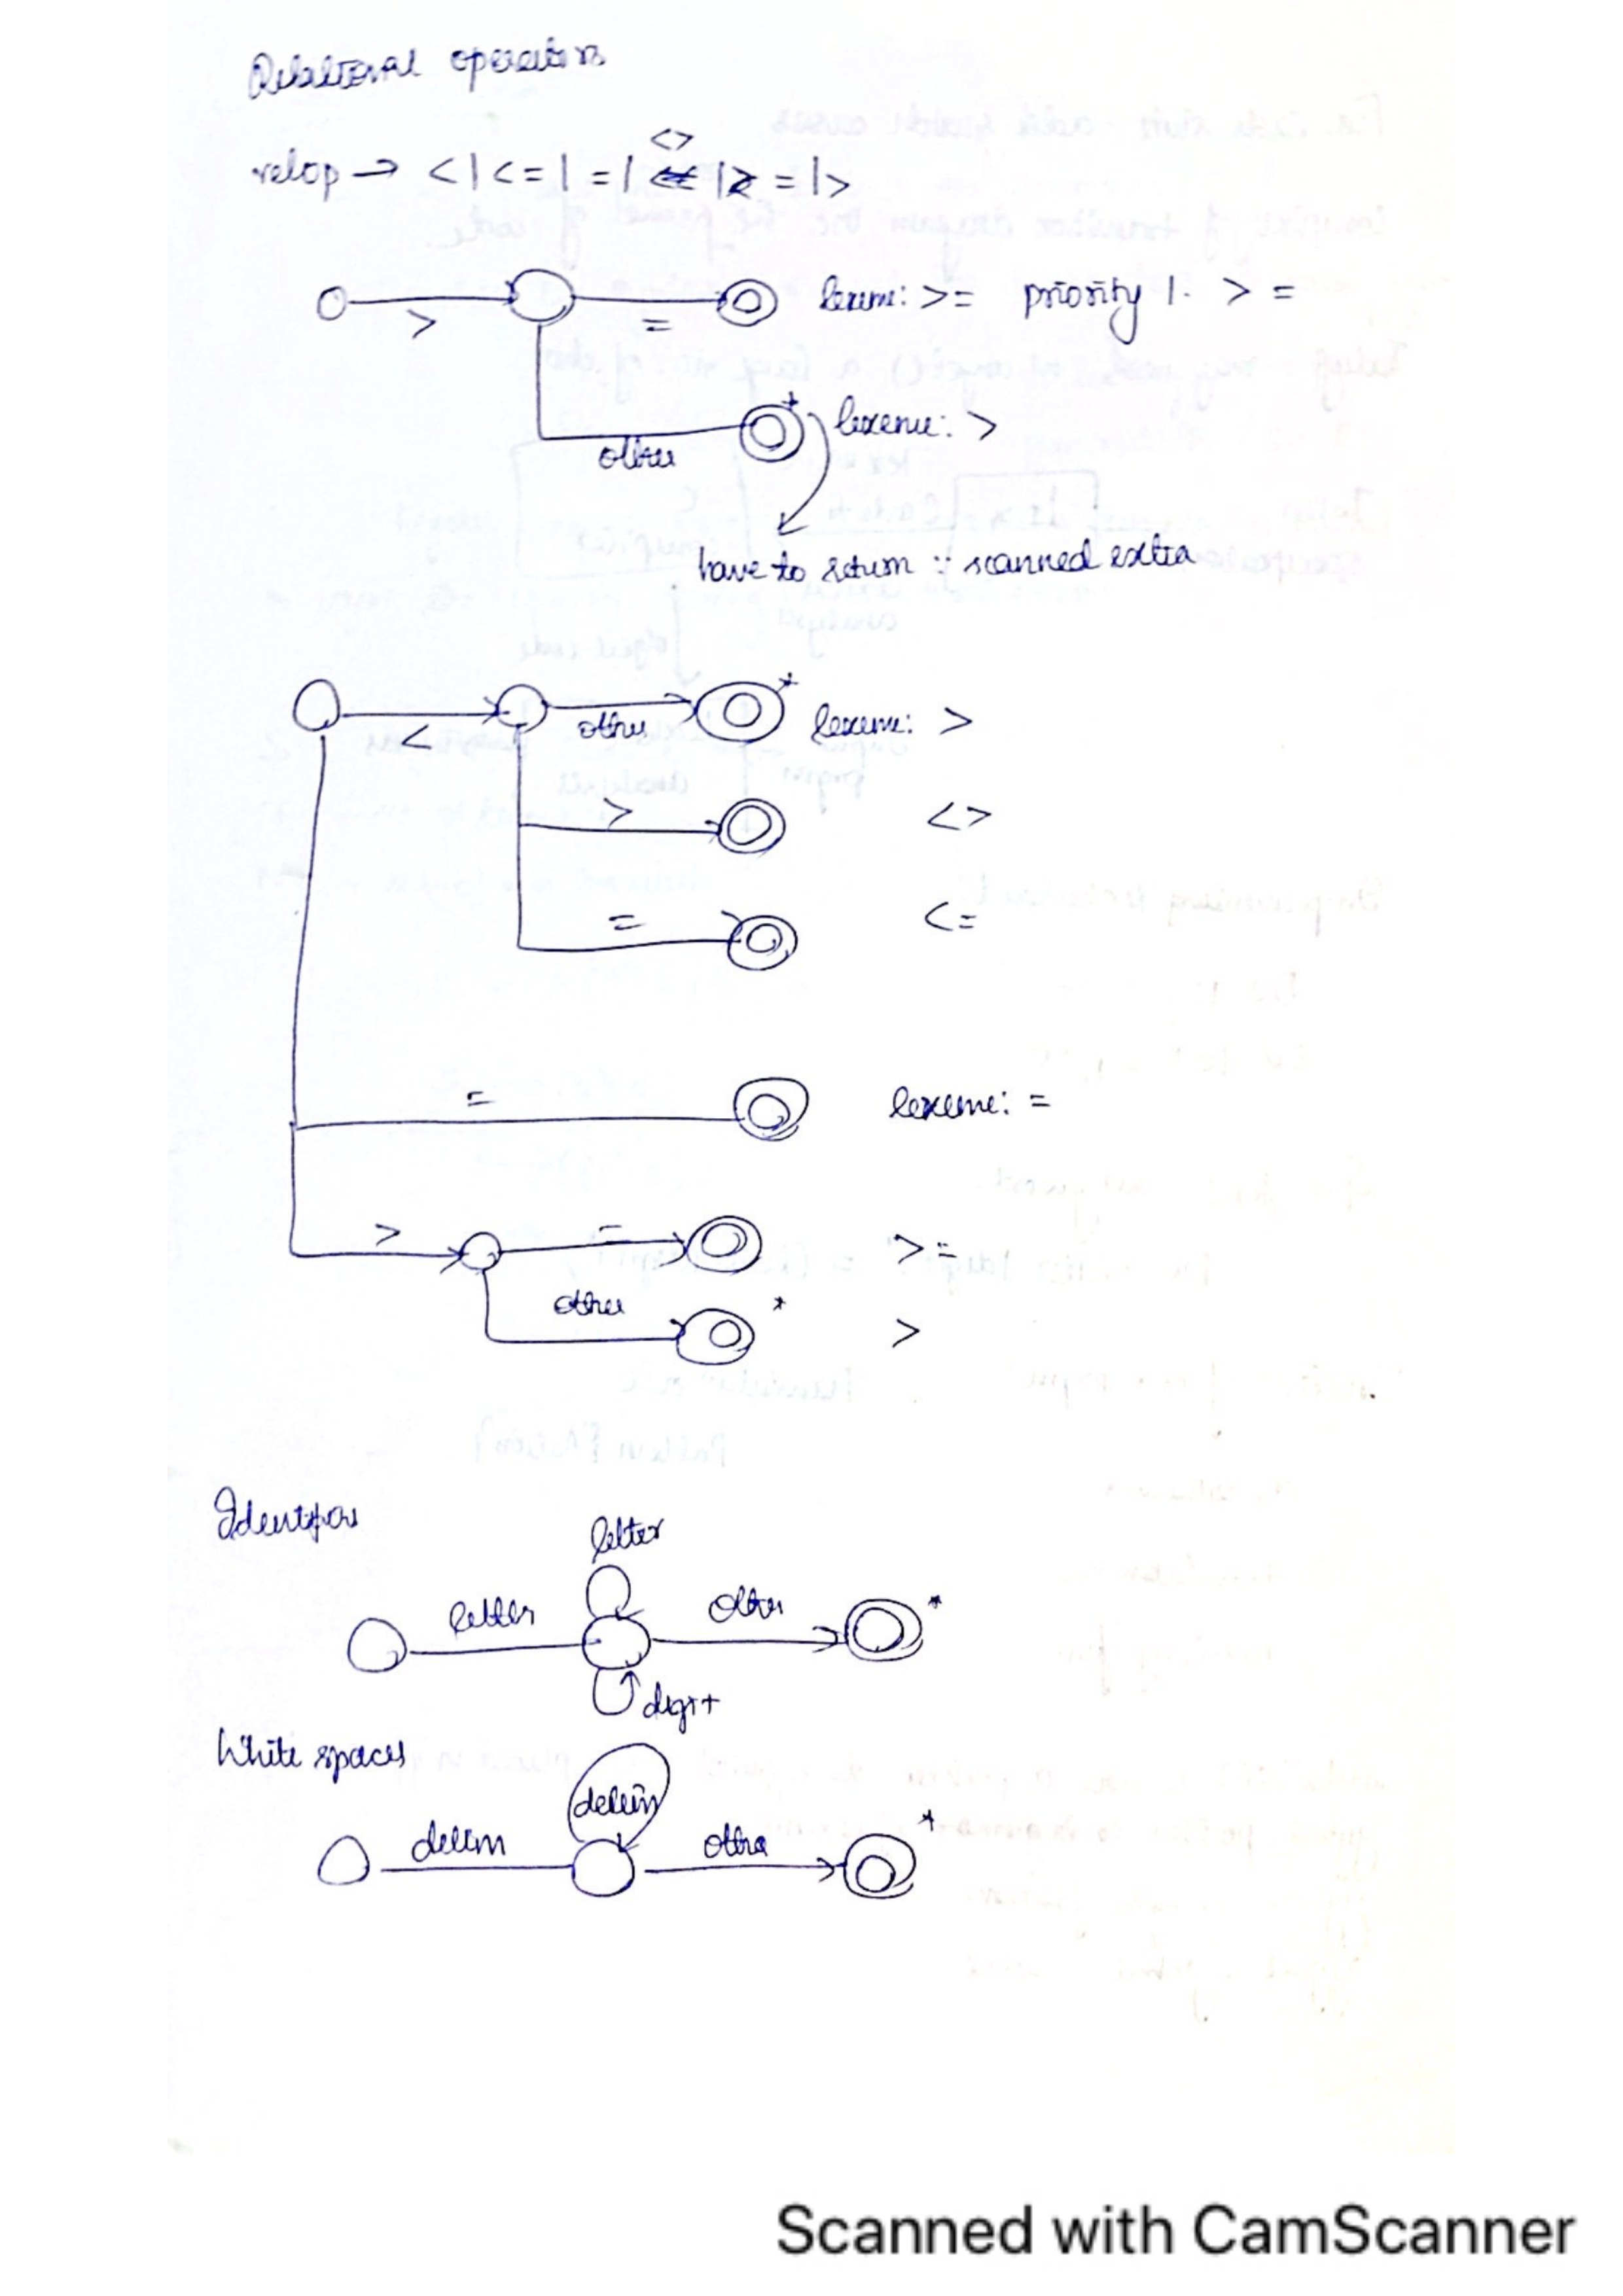 Relational operators
<>
relop → < | <= | = | | > = | >
> = lexeme: >= priority 1. > =
other lexeme: >
have to return ∵ scanned extra
< other * lexeme: >
> <>
= <=
= lexeme: =
> = >=
other * >
Identifier
letter
letter other *
digit
White spaces
delim
delim other *
Scanned with CamScanner